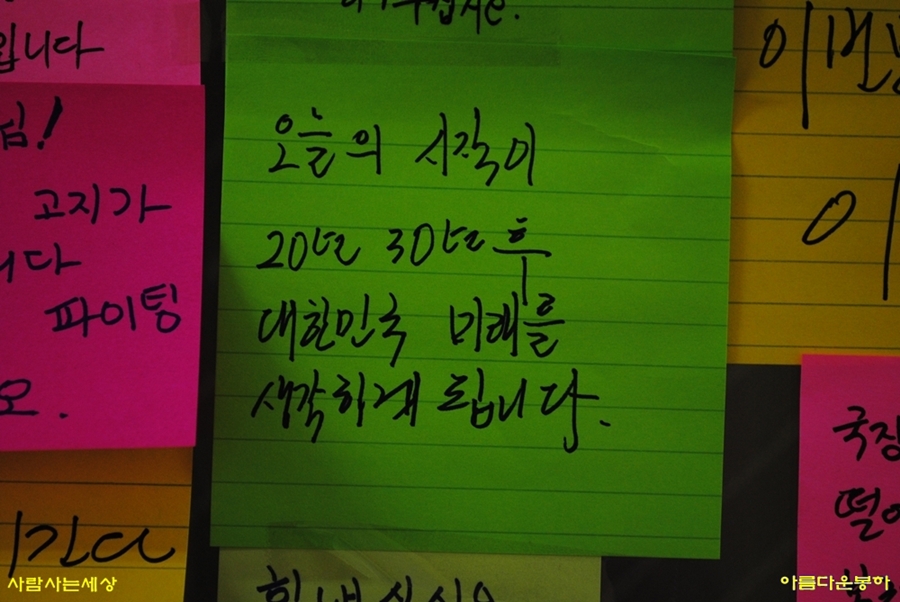 입니다
고지가
니다
파이팅
오.
오늘의 시작이
20년 30년 후
대한민국 미래를
생각하게 됩니다.
힘내십시오
이번
이
국장
떨어
사람사는세상
아름다운봉하